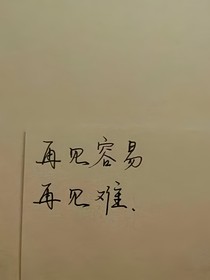 再见容易
再见难.